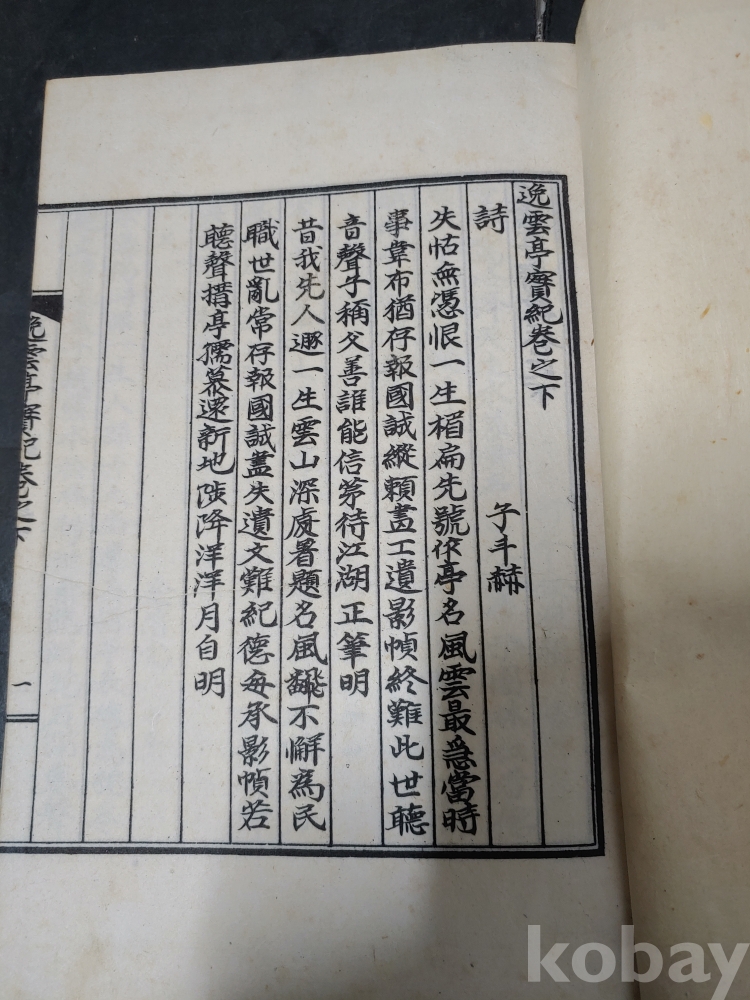 逸雲亭實紀卷之下
詩
子斗赫
失怙無憑恨一生楣扁先號作亭名風雲最爲當時
事韋布猶存報國誠縱賴畵工遺影幀終難此世聽
音聲子稱父善誰能信第待江湖正筆明
昔我先人遯一生雲山深處署題名風飜不懈爲民
職世亂常存報國誠盡失遺文難紀德每承影幀若
聽聲搆亭孺慕還新地陟降洋洋月自明
逸雲亭實紀卷之下
一
kobay